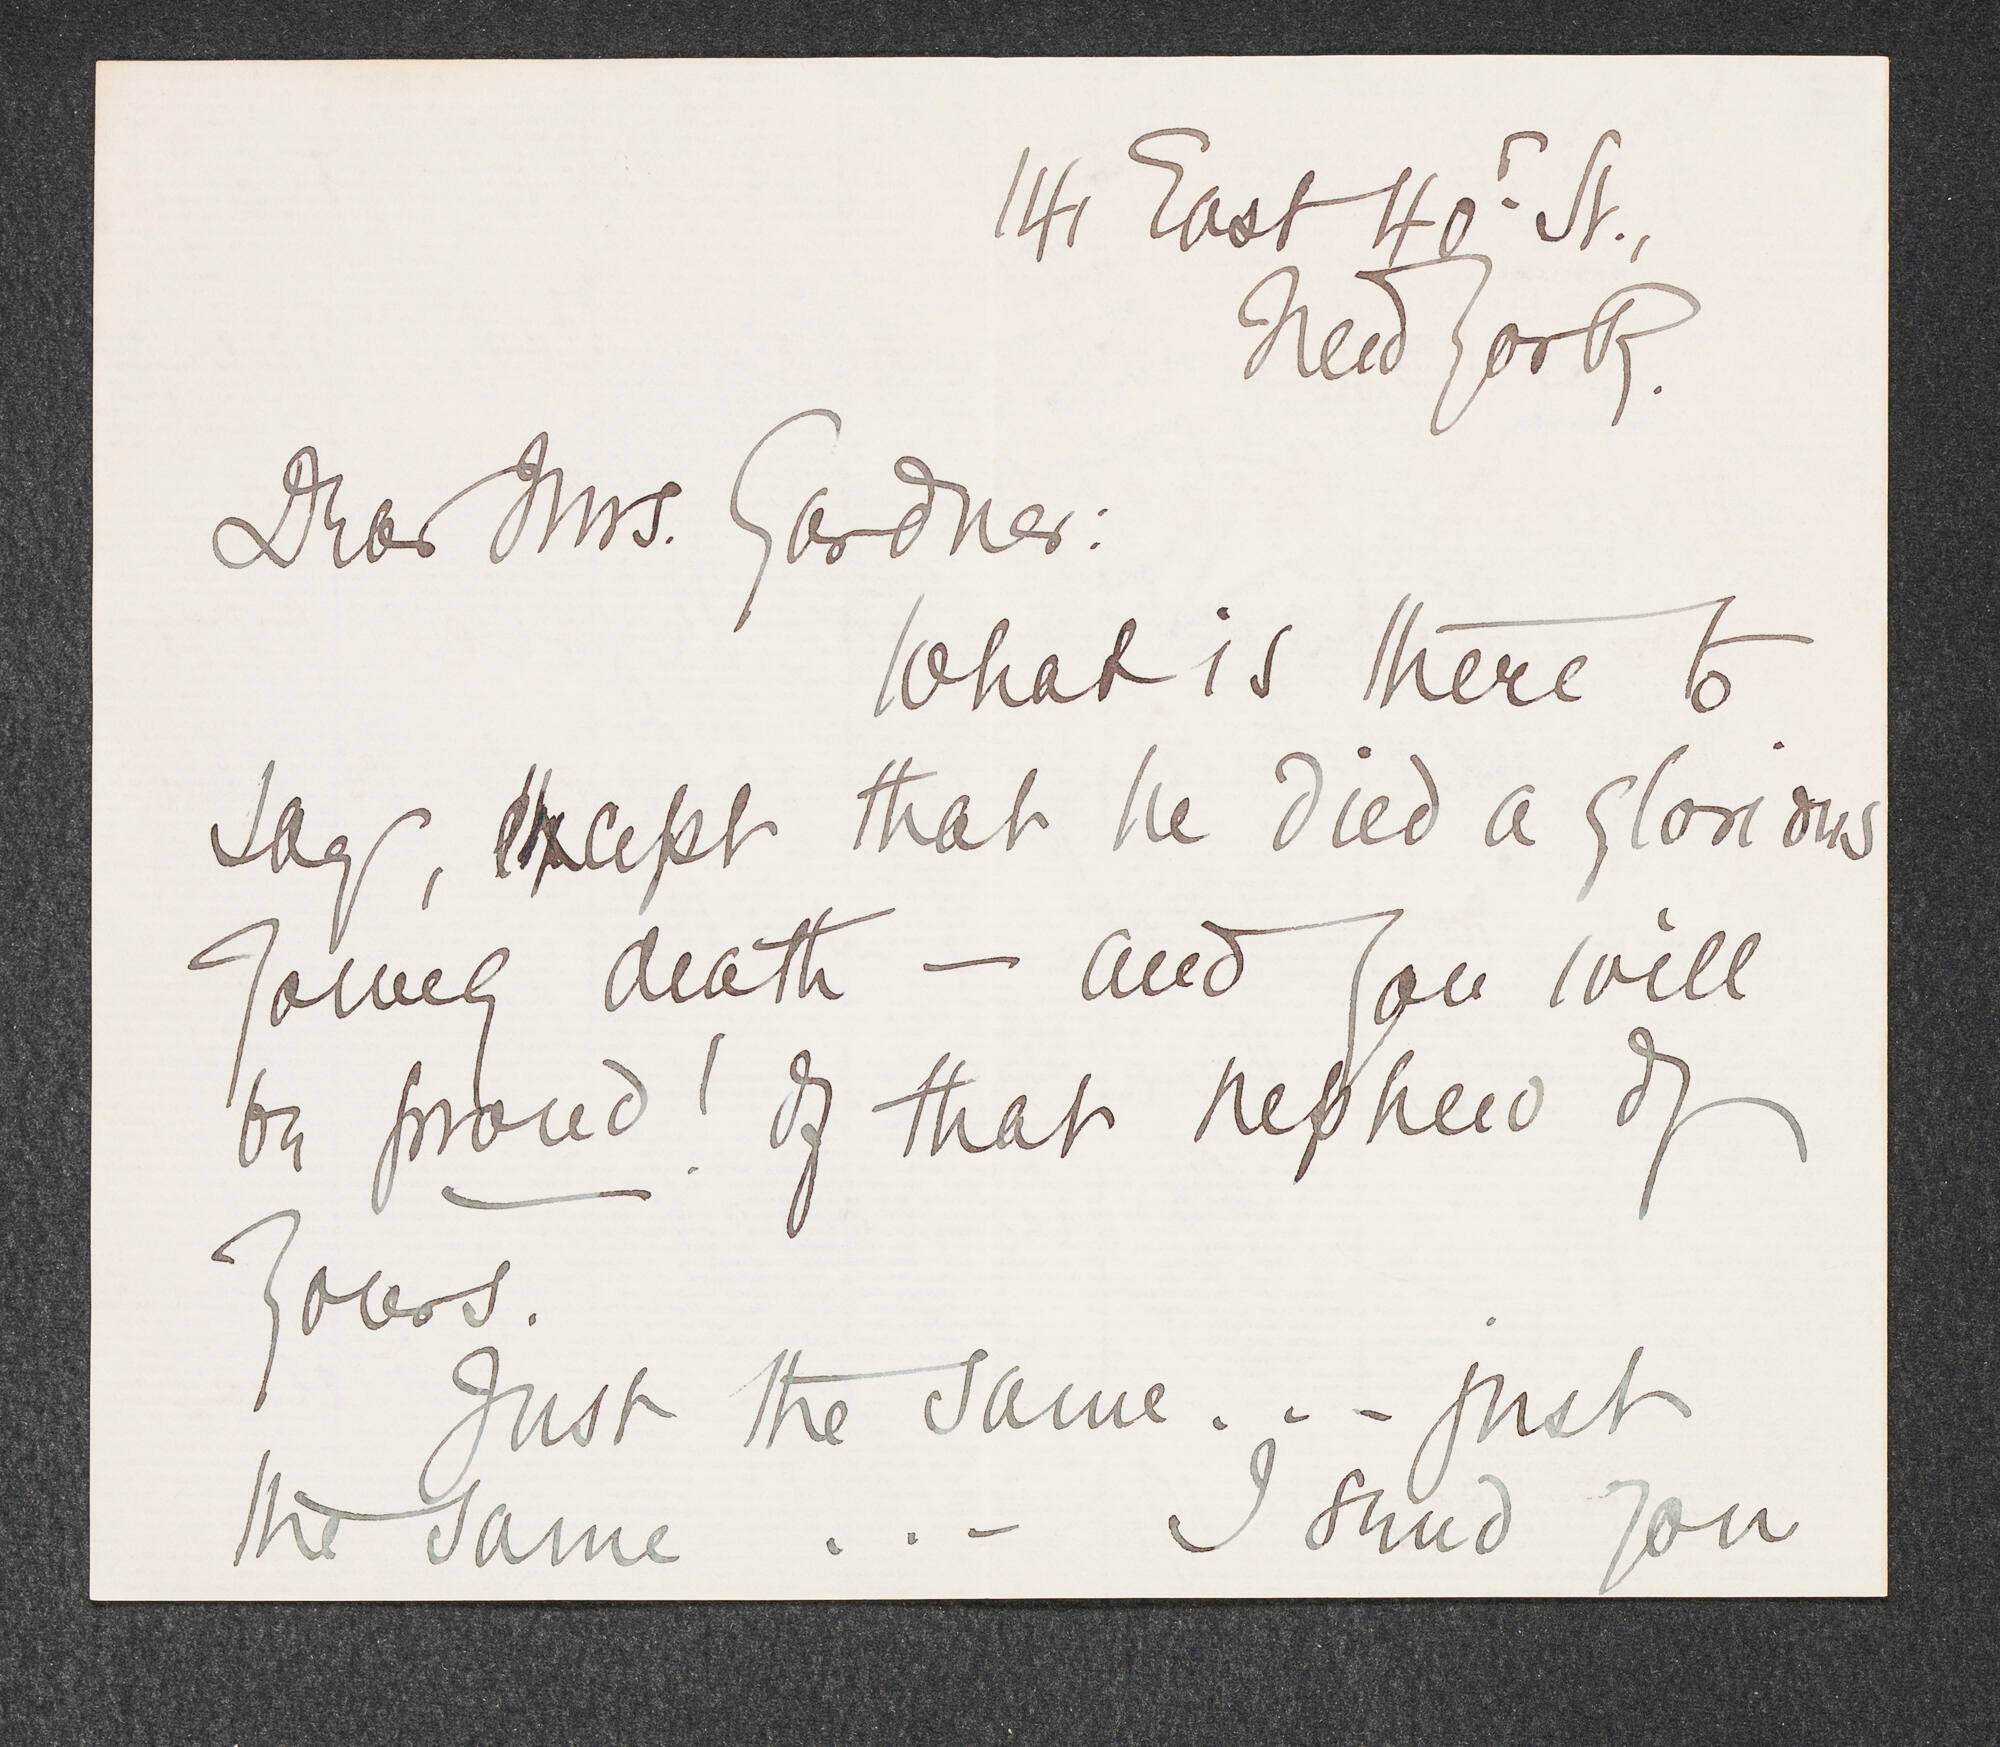 141 East 40T. St.,
New York.
Dear Mrs. Gardner:
What is there to
say, except that he died a glorious
young death — and you will
be proud! of that nephew of
yours.
Just the same . . - just
the same . . - I send you